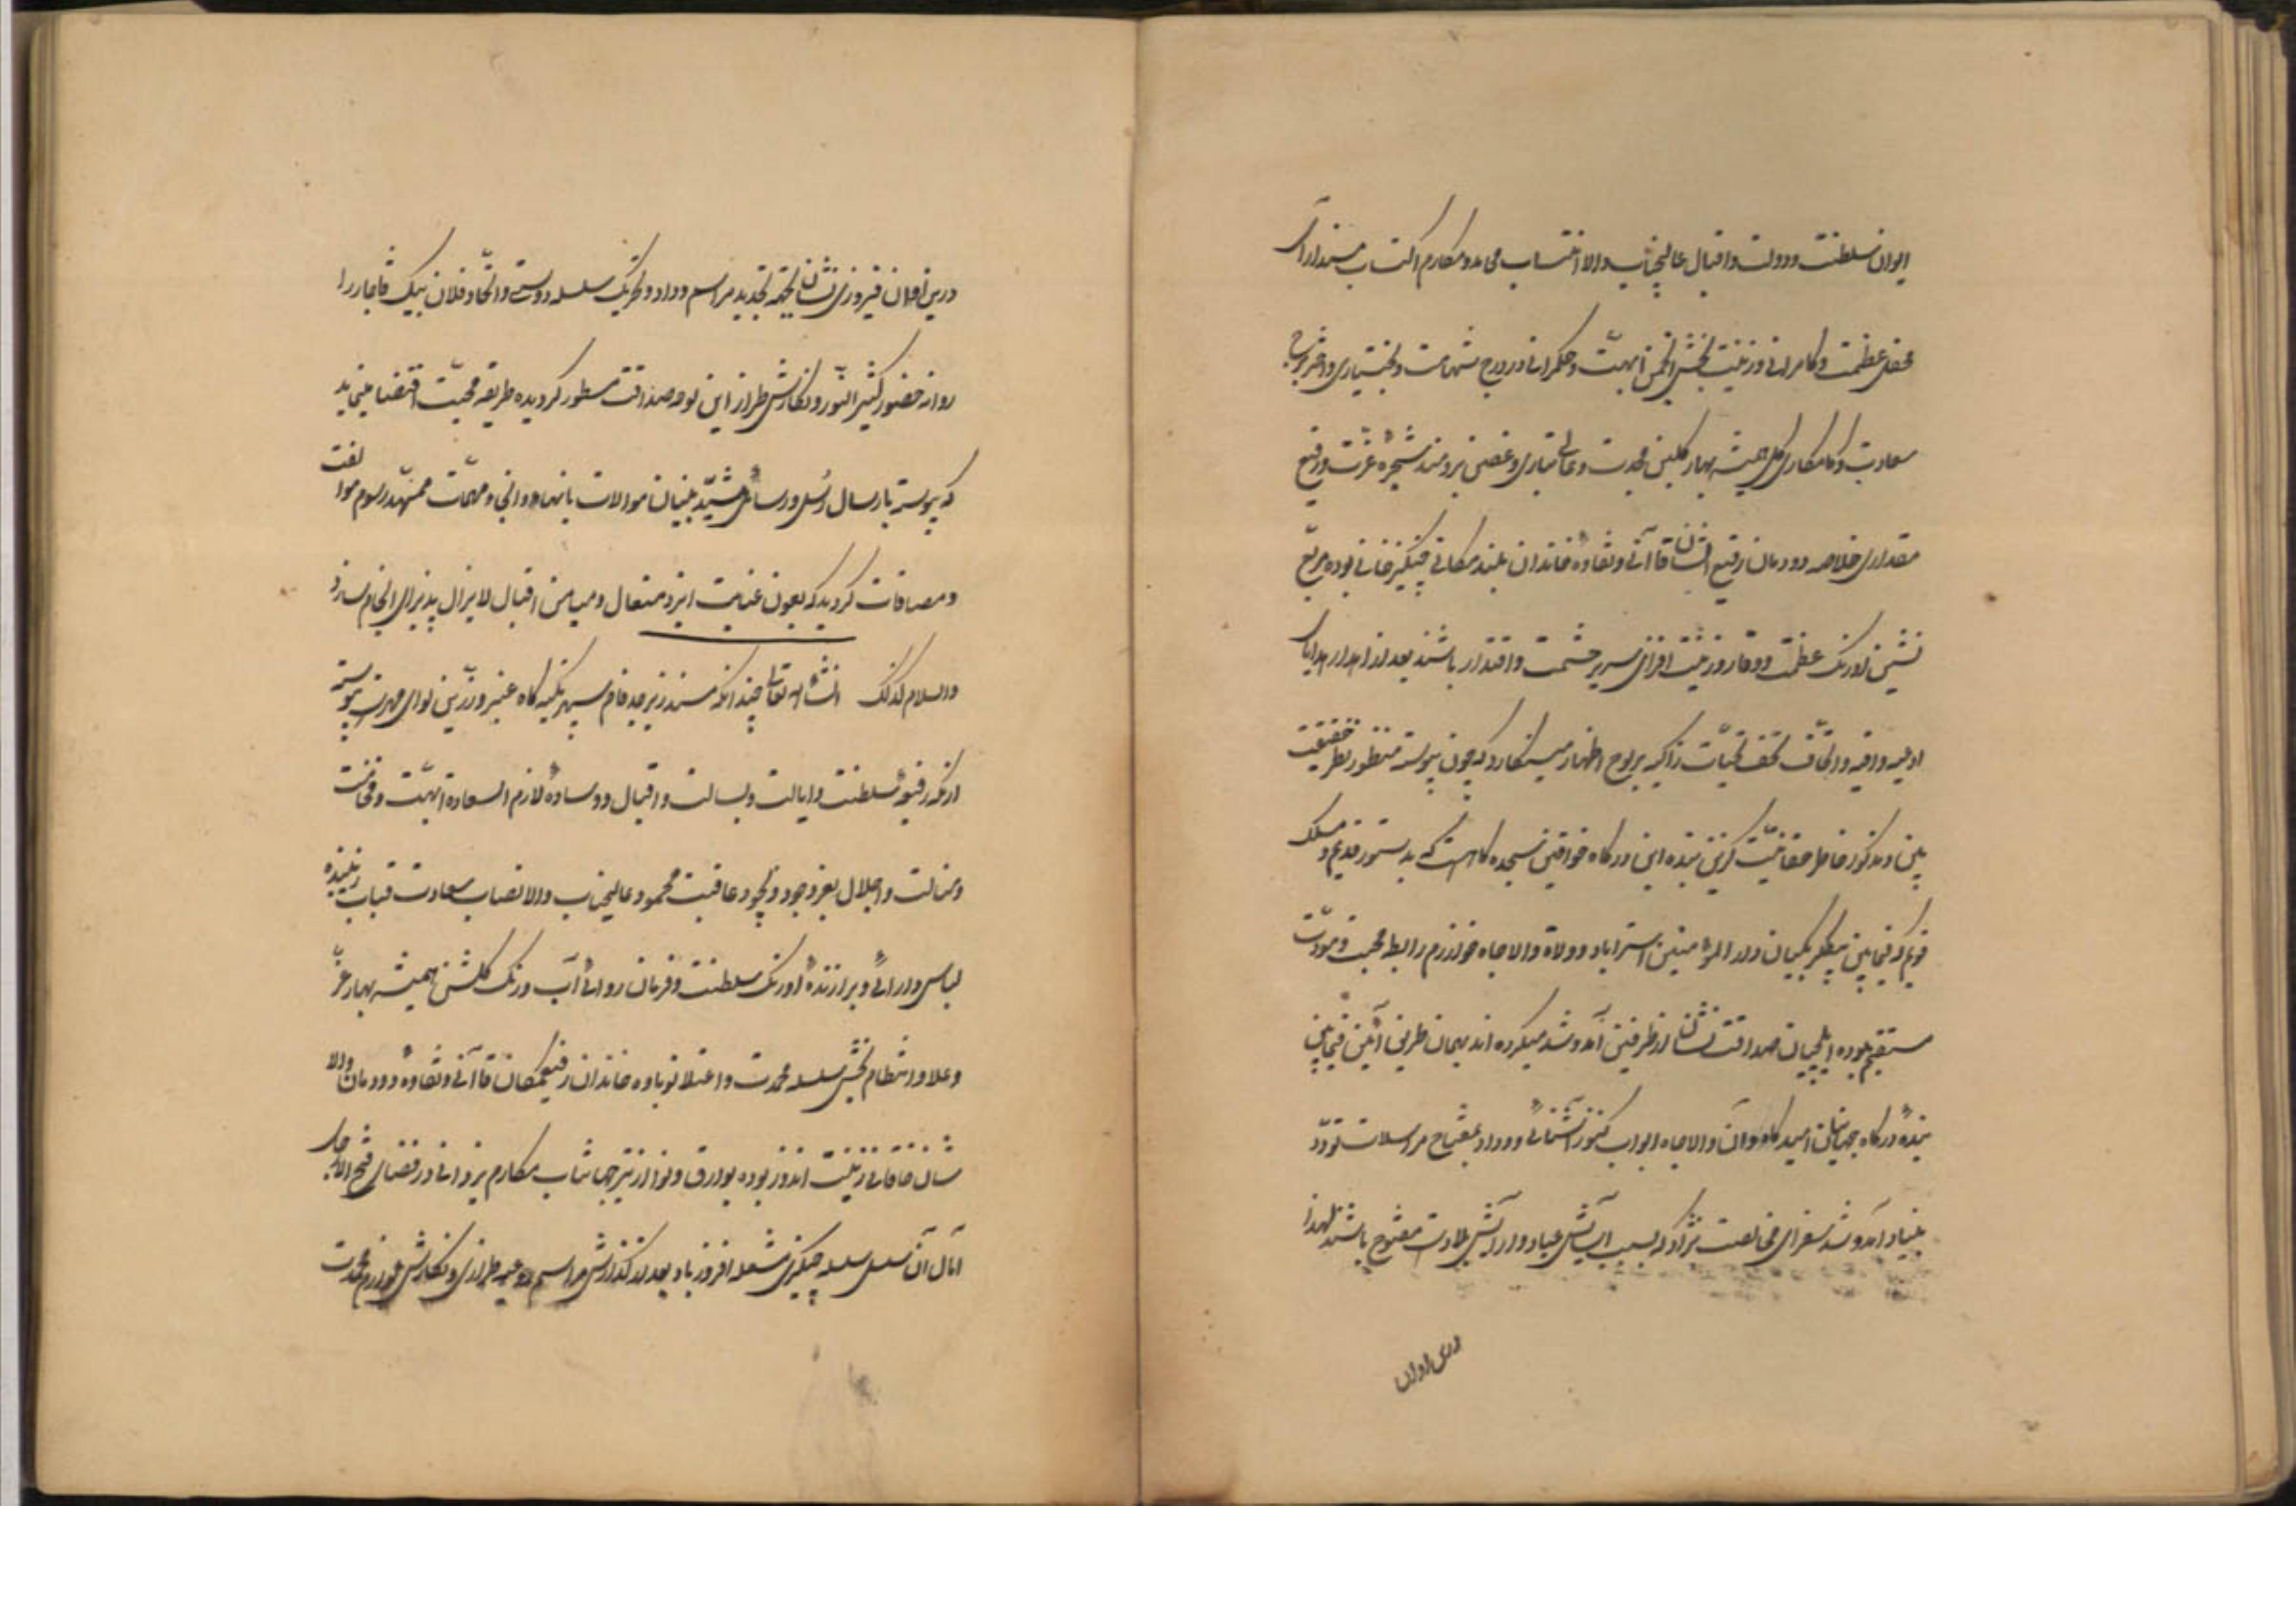 ایوان سلطنت و دولت و اقبال عالیجناب والا انتساب محامد و مکارم اکتساب مسندآرای
محفل عظمت و کامرانی و زینت بخش انجمن ابهت و حکمرانی در درج شهامت و بختیاری و اختر برج
سعادت و کامکاری گل همیشه بهار گلبن مجدت و عالی تباری و غصن برومند شجره عزت و رفیع
مقداری خلاصه دودمان رفیع الشان قاآنی و نقاوه خاندان بلند مکانی چنگیز خانی بوده مربع
نشین اورنگ عظمت و وقار و زینت افزای سریر حشمت و اقتدار باشند بعد از اهدار هدایای
ادعیه وافیه و اتحاف تحف تحیات زاکیه بر لوح اظهار مینگارد که چون پیوسته منظور نظر حقیقت
بین و مذکور خاطر حقانیت گزین بنده این درگاه خواقین سجده گاهست که بدستور قدیم و مسلک
قویم که فیمابین بیگلربیگیان دار المؤمنین استراباد و ولاة والاجاه خوارزم رابطه محبت و مودت
مستقیم بوده ایلچیان صداقت نشان از طرفین آمد و شد میکرده اند بهمان طریق آئین فیمابین
بنده درگاه جهانیان امیدگاه و آن والاجاه ابواب کنوز آشنائی و وداد بمفتاح مراسلات تودد
بنیاد و آمد و شد سفرای مخالصت نژاد که بسبب آسایش عباد و آرایش بلاد است مفتوح باشد لهذا
درین اوان
درین اوان فیروزی نشان بجهة تجدید مراسم وداد و تحریک سلسله دوستی و اتحاد فلان بیک قاجار را
روانه حضور کثیر النور و نگارش طراز این نوحه صداقت مسطور گردیده طریقه محبت اقتضا مینماید
که پیوسته بارسال رسل و رسائل مشید بنیان موالات بانهاء دواعی و مهمات ممهد رسوم موالفت
و مصافات گردید که بعون عنایت ایزد متعال و میامن اقبال لایزال پذیرای انجام سازد
والسلام کذلک انشاء اله تعالی چندانکه مسند زبرجد فام سپهر تکیه گاه عنبر و زرین لوای مهر است پیوسته
اریکه رفیعه سلطنت و ایالت و بسالت و اقبال و وساده لازم السعاده ابهت و فخامت
و منالت و اجلال بعز وجود و بجود عاقبت محمود عالیجناب والا نصاب سعادت قباب زیبنده
لباس دارائی و برازنده اورنگ سلطنت و فرمان روائی آب و رنگ گلشن همیشه بهار عز
و علا و انتظام بخش سلسله مجدت و اعتلا نوباوه خاندان رفیع مکان قاآنی و نقاوه دودمان والا
شان خاقانی زینت اندوز بوده بوارق و انوار نیر جهانتاب مکارم یزدانی در فضای فتح الباب
آمال آن سلسله سلسله چنگیزی مشعله افروز باد بعد از گذارش مراسم ادعیه طرازی و نگارش لوازم محمدت